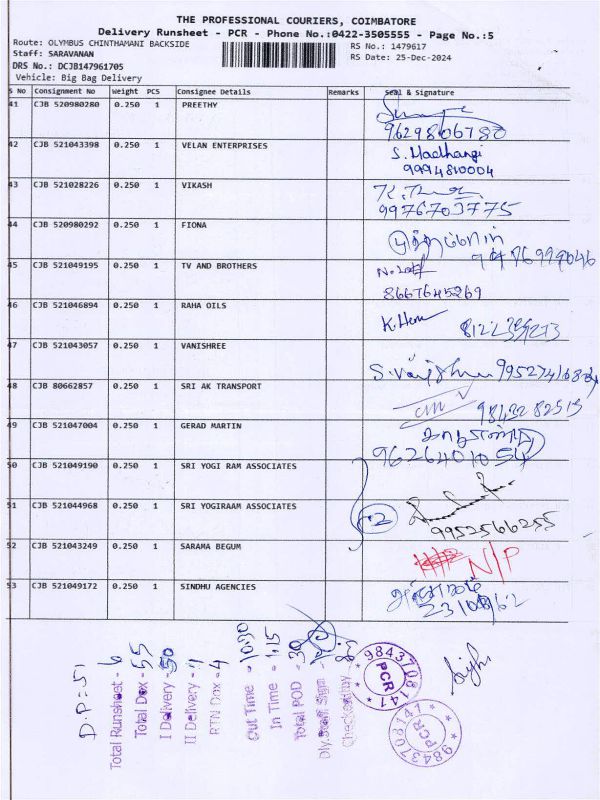 THE PROFESSIONAL COURIERS, COIMBATORE
Delivery Runsheet - PCR - Phone No.:0422-3505555 - Page No.:5
Route: OLYMBUS CHINTHAMANI BACKSIDE
RS No.: 1479617
Staff: SARAVANAN
RS Date: 25-Dec-2024
DRS No.: DCJB147961705
Vehicle: Big Bag Delivery
S No Consignment No Weight PCS Consignee Details Remarks Seal & Signature
41 CJB 520980280 0.250 1 PREETHY
9629806780
42 CJB 521043398 0.250 1 VELAN ENTERPRISES S. Madhangi
9994810004
43 CJB 521028226 0.250 1 VIKASH
9976703775
44 CJB 520980292 0.250 1 FIONA
45 CJB 521049195 0.250 1 TV AND BROTHERS
8667645269
46 CJB 521046894 0.250 1 RAHA OILS K.Hema
47 CJB 521043057 0.250 1 VANISHREE
48 CJB 80662857 0.250 1 SRI AK TRANSPORT
49 CJB 521047004 0.250 1 GERAD MARTIN
9626401054
50 CJB 521049190 0.250 1 SRI YOGI RAM ASSOCIATES
51 CJB 521044968 0.250 1 SRI YOGIRAAM ASSOCIATES 2
9952566255
52 CJB 521043249 0.250 1 SARAMA BEGUM N/P
53 CJB 521049172 0.250 1 SINDHU AGENCIES
D.P:51
Total Runsheet - 6
Total Dox - 55
I Delivery - 50
II Delivery - 1
RTN Dox - 4
Out Time - 10:30
In Time - 1.15
Total POD - 39
Dly.Staff Sign
Checked by
9843708147
PCR
9843708147
PCR